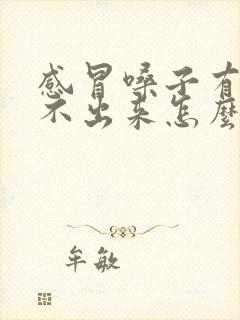 感冒嗓子有
不出来怎麽
牟敏